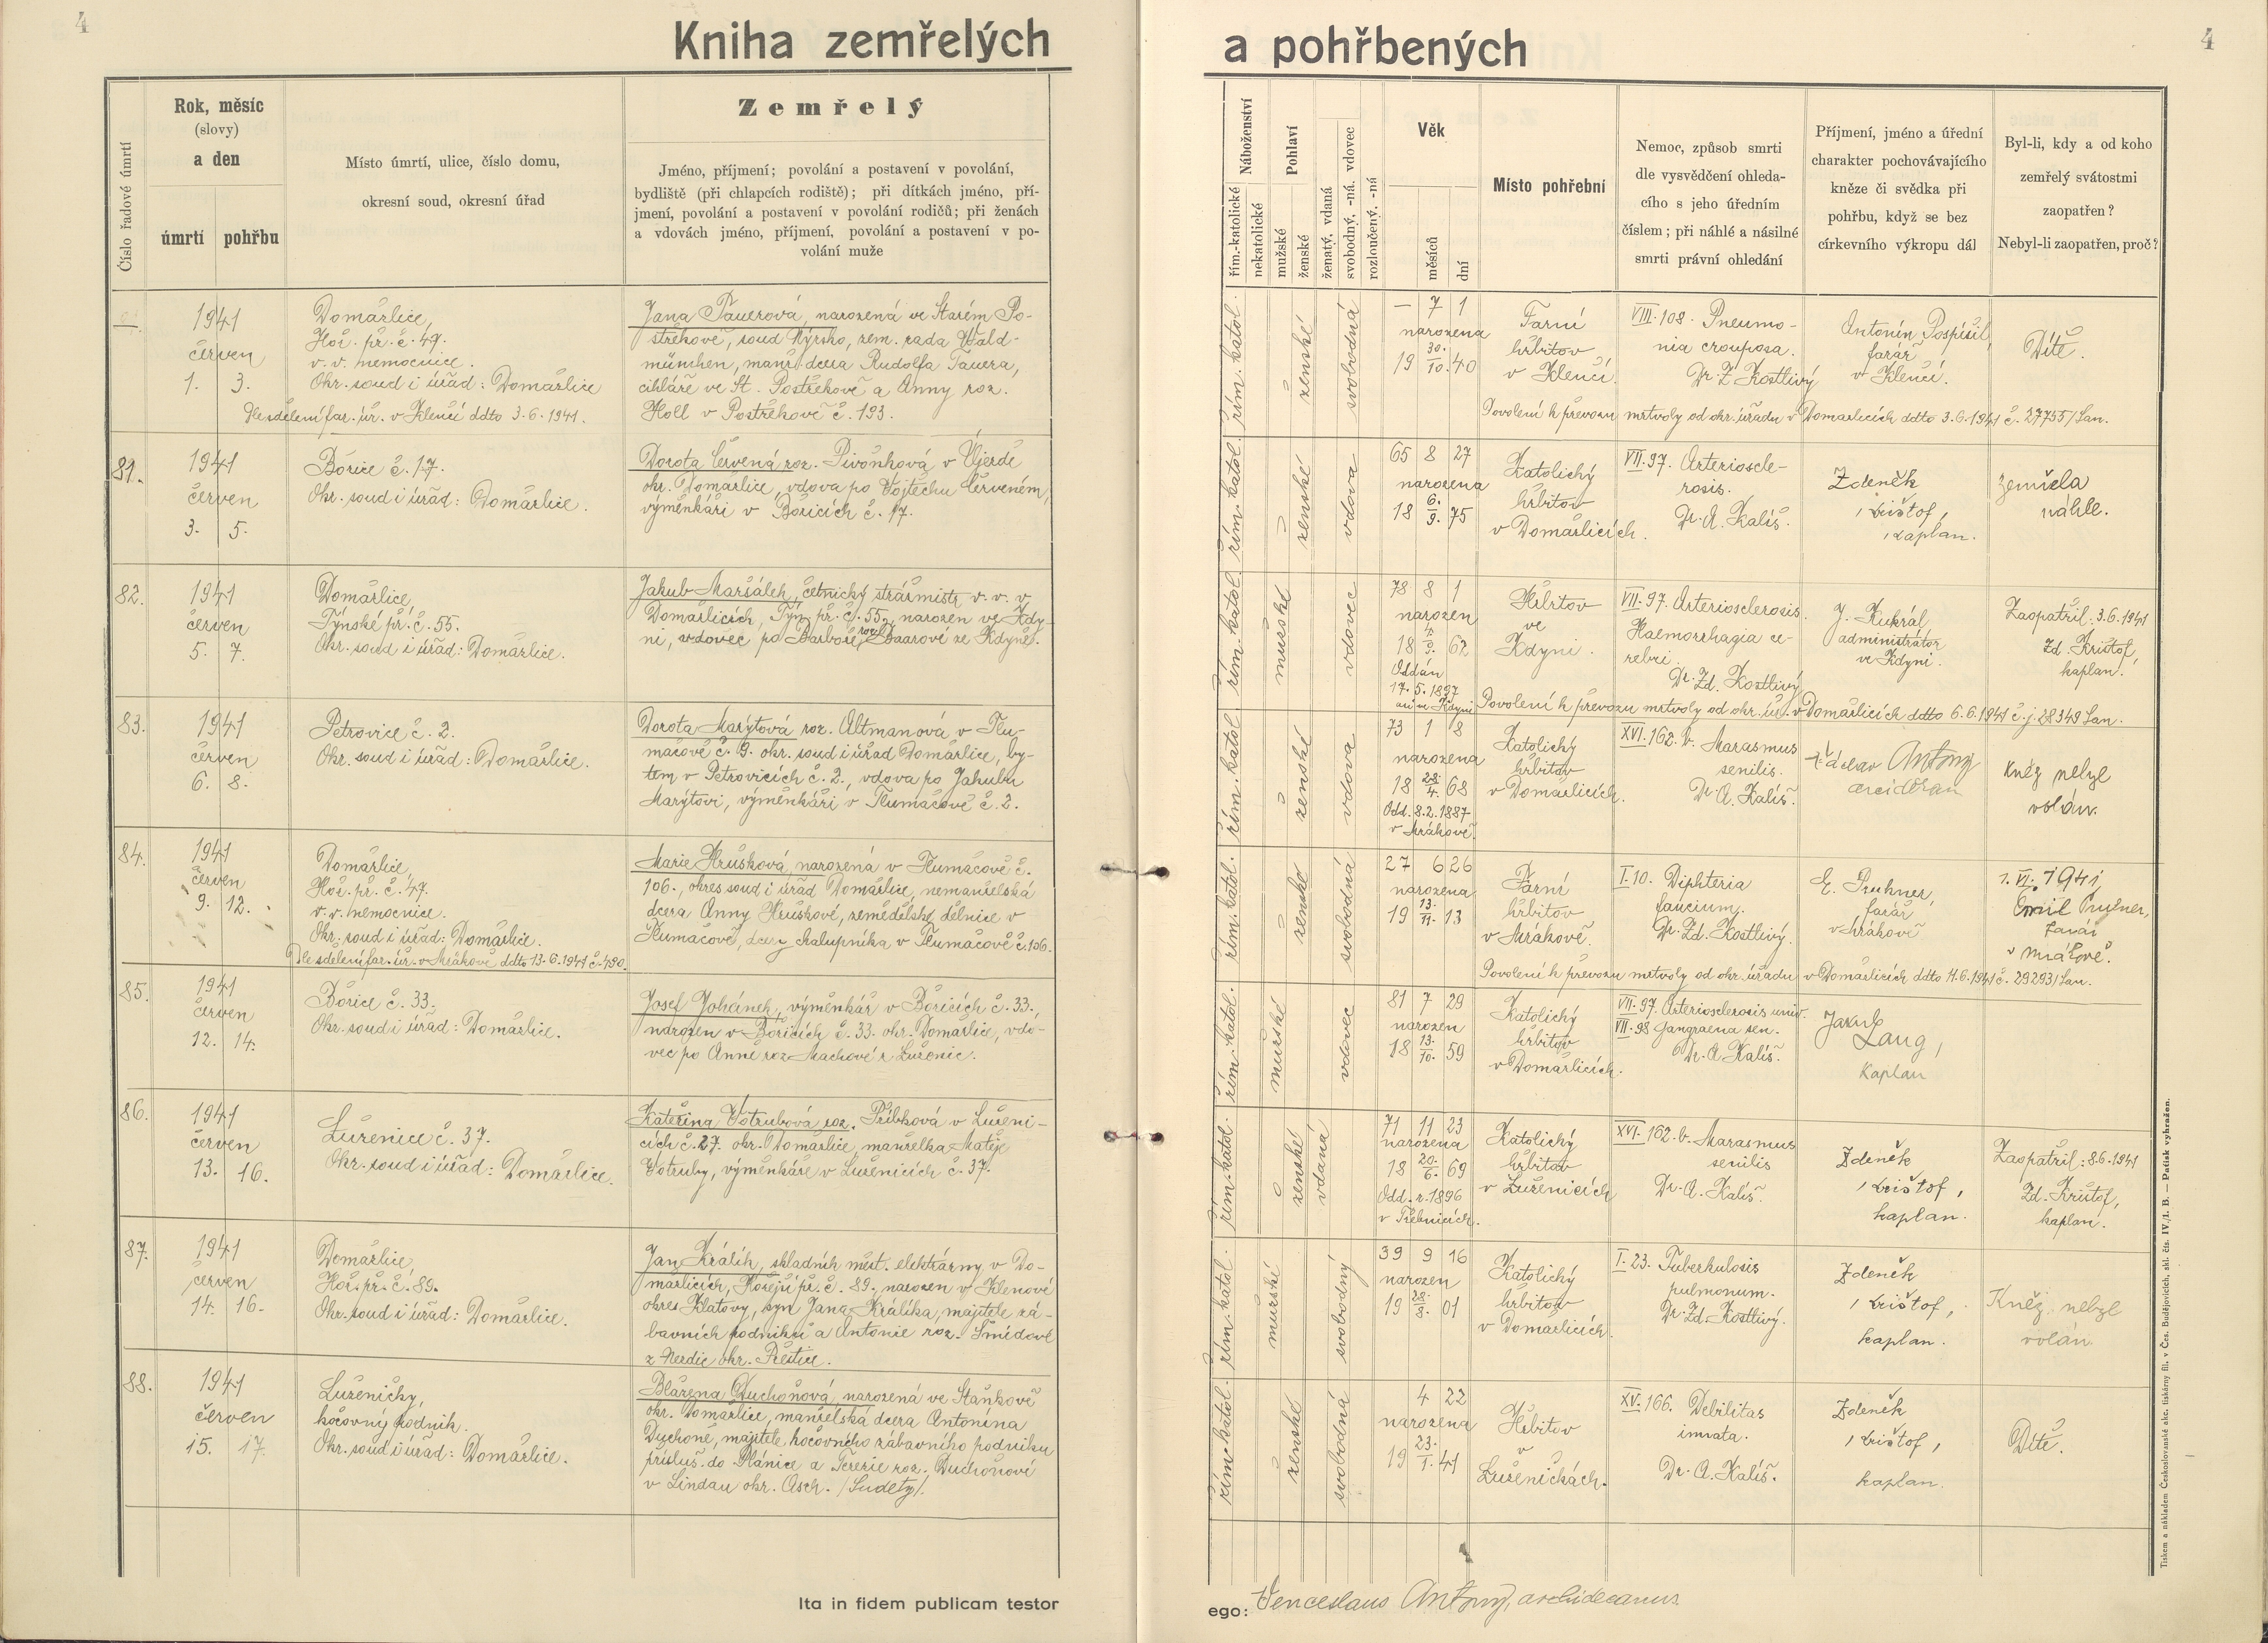 4
Kniha zemřelých
Číslo řadové úmrtí
Rok, měsíc
(slovy)
a den
úmrtí pohřbu
Místo úmrtí, ulice, číslo domu,
okresní soud, okresní úřad
Zemřelý
Jméno, příjmení; povolání a postavení v povolání,
bydliště (při chlapcích rodiště); při dítkách jméno, pří-
jmení, povolání a postavení v povolání rodičů; při ženách
a vdovách jméno, příjmení, povolání a postavení v po-
volání muže
—
1941
červen
1. 3.
Domažlice,
Hoř. př. č. 49.
v. v. nemocnice.
Okr. soud i úřad: Domažlice
Dle sdělení far. úř. v Klenčí ddto 3.6.1941.
Jana Tauerová, narozená ve Starém Po-
střekově, soud Nýrsko, zem. rada Wald-
münchen, manž. dcera Rudolfa Tauera,
cihláře ve St. Postřekově a Anny roz.
Holl v Postřekově č. 193.
81.
1941
červen
3. 5.
Bořice č. 17.
Okr. soud i úřad: Domažlice.
Dorota Červená roz. Pivoňková v Újezdě
okr. Domažlice, vdova po Vojtěchu Červeném,
výměnkáři v Bořicích č. 17.
82.
1941
červen
5. 7.
Domažlice,
Týnské př. č. 55.
Okr. soud i úřad: Domažlice.
Jakub Maršálek, četnický strážmistr v. v. v
Domažlicích, Týn. př. č. 55, narozen ve Kdy-
ni, vdovec po Barboře roz. Baarové ze Kdyně.
83.
1941
červen
6. 8.
Petrovice č. 2.
Okr. soud i úřad: Domažlice.
Dorota Marýtová roz. Altmanová v Tlu-
mačově č. 9. okr. soud i úřad Domažlice, by-
tem v Petrovicích č. 2., vdova po Jakubu
Marýtovi, výměnkáři v Tlumačově č. 2.
84.
1941
červen
9. 12.
Domažlice,
Hoř. př. č. 47.
v. v. nemocnice.
Okr. soud i úřad: Domažlice.
Dle sdělení far. úř. v Mrákově ddto 13.6.1941 č. 490.
Marie Hrušková, narozená v Tlumačově č.
106., okres soud i úřad Domažlice, nemanželská
dcera Anny Hruškové, zemědělské dělnice v
Tlumačově, dcery chalupníka v Tlumačově č. 106.
85.
1941
červen
12. 14.
Bořice č. 33.
Okr. soud i úřad: Domažlice.
Josef Johánek, výměnkář v Bořicích č. 33.,
narozen v Bořicích č. 33. okr. Domažlice, vdo-
vec po Anně roz. Machové z Luženic.
86.
1941
červen
13. 16.
Luženice č. 37.
Okr. soud i úřad: Domažlice.
Kateřina Votrubová roz. Přibková v Luženi-
cích č. 27. okr. Domažlice, manželka Matěje
Votruby, výměnkáře v Luženicích č. 37.
87.
1941
červen
14. 16.
Domažlice,
Hoř. př. č. 89.
Okr. soud i úřad: Domažlice.
Jan Králík, skladník měst. elektrárny v Do-
mažlicích, Hořejší př. č. 89, narozen v Klenové
okres Klatovy, syn Jana Králíka, majitele zá-
bavních podniků a Antonie roz. Šmídové
z Nezdic okr. Přeštice.
88.
1941
červen
15. 17.
Luženičky,
kočovný podnik.
Okr. soud i úřad: Domažlice.
Blažena Duchoňová, narozená ve Staňkově
okr. Domažlice, manželská dcera Antonína
Duchoně, majitele kočovného zábavního podniku
přísluš. do Plánice a Terezie roz. Duchoňové
v Lindau okr. Asch. /Sudety/.
Ita in fidem publicam testor
4
a pohřbených
Náboženství
řím.-katolické
nekatolické
Pohlaví
mužské
ženské
ženatý, vdaná
svobodný, -ná. vdovec
rozloučený, -ná
Věk
měsíců
dní
Místo pohřební
Nemoc, způsob smrti
dle vysvědčení ohleda-
cího s jeho úředním
číslem; při náhlé a násilné
smrti právní ohledání
Příjmení, jméno a úřední
charakter pochovávajícího
kněze či svědka při
pohřbu, když se bez
církevního výkropu dál
Byl-li, kdy a od koho
zemřelý svátostmi
zaopatřen?
Nebyl-li zaopatřen, proč?
řím. katol.
ženské
svobodná
— 7 1
narozena
19 30./10. 40
Farní
hřbitov
v Klenčí.
VIII. 108. Pneumo-
nia crouposa.
Dr. Z. Kostlivý
Antonín Pospíšil,
farář
v Klenčí.
Dítě.
Povolení k převozu mrtvoly od okr. úřadu v Domažlicích ddto 3.6.1941 č. 27755/San.
řím. katol.
ženské
vdova
65 8 27
narozena
18 6./9. 75
Katolický
hřbitov
v Domažlicích.
VII. 97. Arterioscle-
rosis.
Dr. A. Kališ.
Zdeněk
Krištof,
kaplan.
zemřela
náhle.
řím. katol.
mužské
vdovec
78 8 1
narozen
18 62
Oddán
17.5.1897
ve Kdyni
Hřbitov
ve
Kdyni.
VII. 97. Arteriosclerosis.
Haemorrhagia ce-
rebri.
Dr. Zd. Kostlivý
J. Kukrál
administrátor
ve Kdyni.
Zaopatřil: 3.6.1941
Zd. Krištof,
kaplan.
Povolení k převozu mrtvoly od okr. úř. v Domažlicích ddto 6.6.1941 č. j. 28349 San.
řím. katol.
ženské
vdova
73 1 8
narozena
18 28./4. 68
Odd. 8.2.1887
v Mrákově.
Katolický
hřbitov
v Domažlicích.
XVI. 162. b. Marasmus
senilis.
Dr. A. Kališ.
Václav Antony
arciděkan
Kněz nebyl
volán.
řím. katol.
ženské
svobodná
27 6 26
narozena
19 13./11. 13
Farní
hřbitov
v Mrákově.
I. 10. Diphteria
faucium.
Dr. Zd. Kostlivý.
E. Pruhner,
farář
v Mrákově
7. VI. 1941,
Emil Pruhner,
farář
v Mrákově.
Povolení k převozu mrtvoly od okr. úřadu v Domažlicích ddto 11.6.1941 č. 29293/San.
řím. katol.
mužské
vdovec
81 7 29
narozen
18 13./10. 59
Katolický
hřbitov
v Domažlicích.
VII. 97. Arteriosclerosis univ.
VII. 98 Gangraena sen.
Dr. A. Kališ.
Jakub
Lang,
kaplan
řím. katol.
ženské
vdaná
71 11 23
narozena
18 20./6. 69
Odd. r. 1896
v Třebnicích.
Katolický
hřbitov
v Luženicích
XVI. 162. b. Marasmus
senilis
Dr. A. Kališ.
Zdeněk
Krištof,
kaplan.
Zaopatřil: 8.6.1941
Zd. Krištof,
kaplan.
řím. katol.
mužské
svobodný
39 9 16
narozen
19 28./8. 01
Katolický
hřbitov
v Domažlicích.
I. 23. Tuberkulosis
pulmonum.
Dr. Zd. Kostlivý.
Zdeněk
Krištof,
kaplan.
Kněz nebyl
volán
řím. katol.
ženské
svobodná
4 22
narozena
19 23./1. 41
Hřbitov
v
Luženičkách.
XV. 166. Debilitas
innata.
Dr. A. Kališ.
Zdeněk
Krištof,
kaplan.
Dítě.
ego: Venceslaus Antony, archidecanus.
Tiskem a nákladem Československé akc. tiskárny fil. v Čes. Budějovicích, skl. čís. IV./1. B. — Patisk vyhražen.